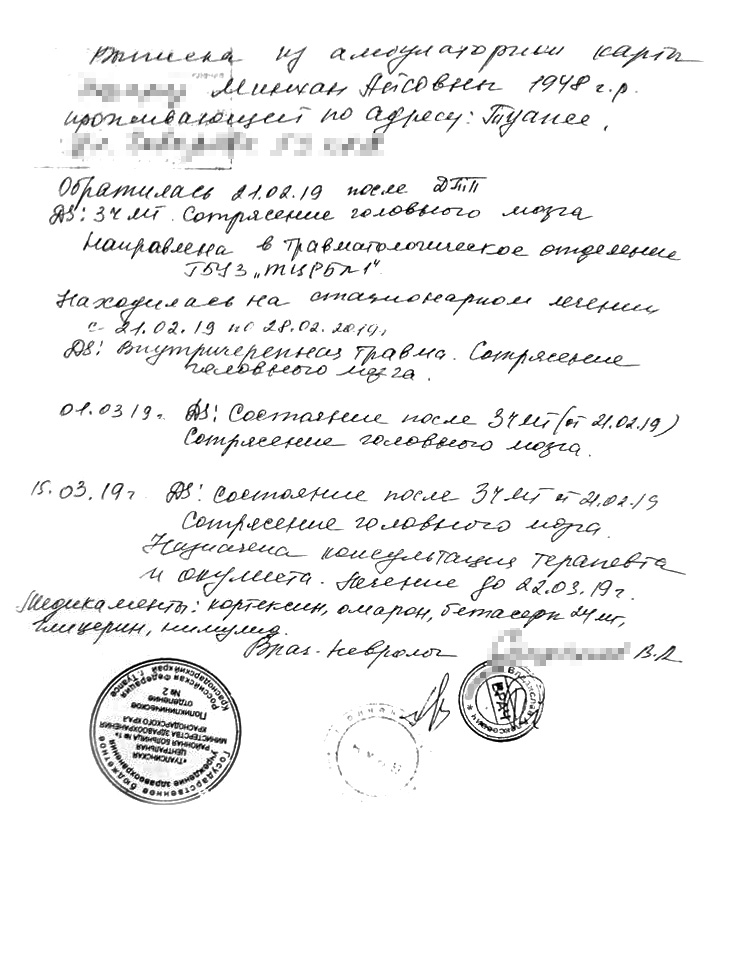 Выписка из амбулаторной карты
Минхан Аисовны 1948 г.р.
проживающей по адресу: Туапсе,
Обратилась 21.02.19 после ДТП
DS: ЗЧМТ. Сотрясение головного мозга
Направлена в травматологическое отделение
ГБУЗ „ТЦРБ№1"
Находилась на стационарном лечении
с 21.02.19 по 28.02.2019г.
DS: Внутричерепная травма. Сотрясение
головного мозга.
01.03.19г. DS: Состояние после ЗЧМТ (от 21.02.19)
Сотрясение головного мозга.
15.03.19г. DS: Состояние после ЗЧМТ от 21.02.19
Сотрясение головного мозга.
Назначена консультация терапевта
и окулиста. Лечение до 22.03.19г.
Медикаменты: кортексин, омарон, бетасерк 24 мг,
глицерин, нимулид.
Врач-невролог В.А
Государственное бюджетное
учреждение здравоохранения
«ТУАПСИНСКАЯ
ЦЕНТРАЛЬНАЯ
РАЙОННАЯ БОЛЬНИЦА № 1»
МИНИСТЕРСТВА ЗДРАВООХРАНЕНИЯ
КРАСНОДАРСКОГО КРАЯ
Поликлиническое
отделение
№ 2
Российская Федерация
Краснодарский край г. Туапсе
ВРАЧ